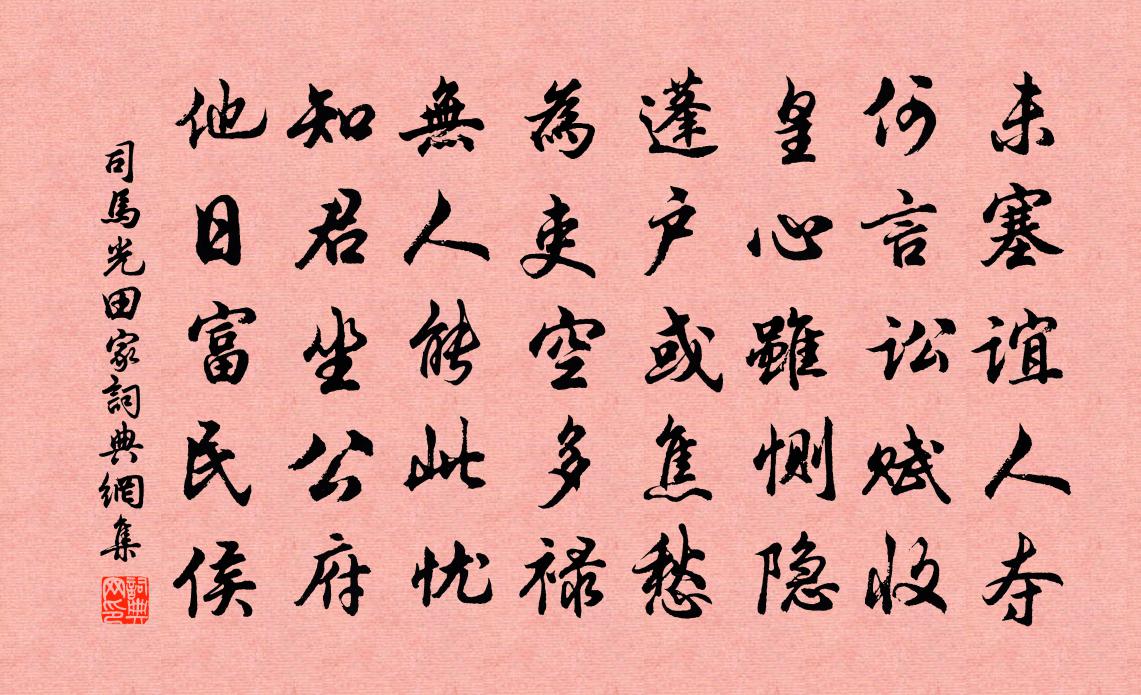 未塞谊人夺
何言讼赋收
皇心雖恻隐
蓬户或焦愁
為吏空多禄
無人能此忧
知君坐公府
他日富民侯
司馬光田家詞典網集
詞典网印